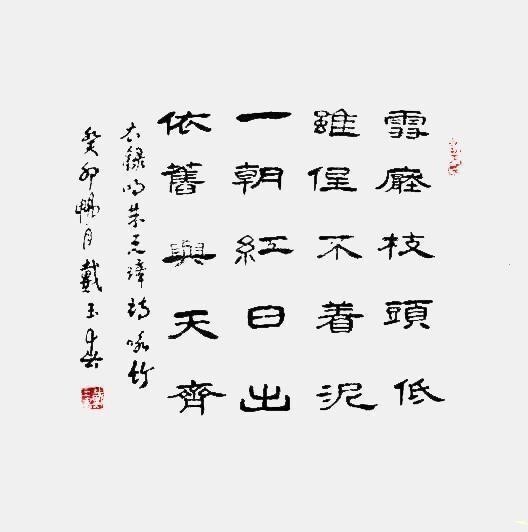 雪壓枝頭低
雖低不着泥
一朝紅日出
依舊與天齊
右錄明朱元璋詩咏竹
癸卯暢月戴玉春